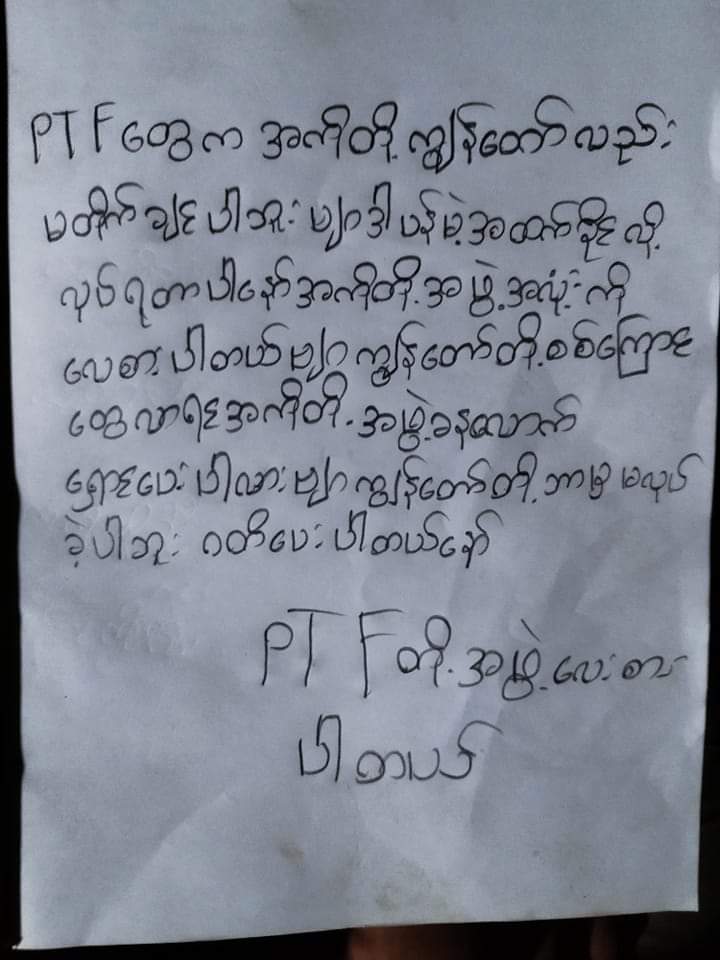 PTF တွေက အကိုတို့ ကျွန်တော်လည်း
မတိုက်ချင်ပါဘူးဗျာဒါပန်မဲ့အထက်ခိုင်လို့
လုပ်ရတာပါနော်အကိုတို့အဖွဲ့အလုံးကို
လေစားပါတယ်ဗျာကျွန်တော်တို့စစ်ကြောင်း
တွေလာရင်အကိုတို့အဖွဲ့ခနလောက်
ရှောင်ပေးပါလားဗျာကျွန်တော်တို့ဘာမှမလုပ်
ခဲ့ပါဘူး ဂတိပေးပါတယ်နော်
PTF တို့အဖွဲ့လေးစား
ပါတယ်